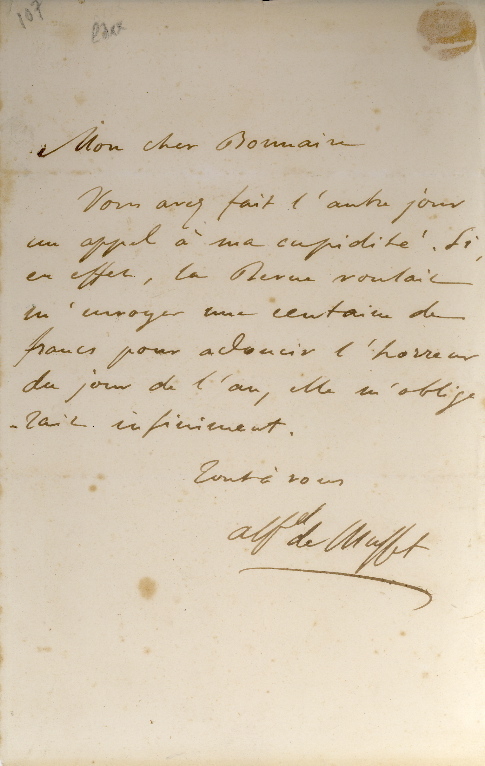 107
Mon cher Bonnaire
Vous avez fait l'autre jour
un appel à ma cupidité. Si,
en effet, la Revue voulait
m'envoyer une centaine de
francs pour adoucir l'horreur
du jour de l'an, elle m'oblige
-rait infiniment.
Tout à vous
Alf.d de Musset